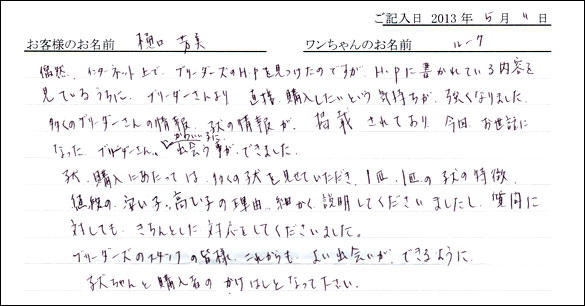 ご記入日 2013年 5月 11日
お客様のお名前 樋口 芳美 ワンちゃんのお名前 ルーク
偶然、インターネット上で、ブリーダーズのH.Pを見つけたのですが、H.Pに書かれている内容を
見ているうちに、ブリーダーさんより 直接、購入したいという気持ちが、強くなりました。
多くのブリーダーさんの情報、子犬の情報が、掲載されており、今回、お世話に
なった、ブリーダーさん、かわいい子に出会う事ができました。
子犬、購入にあたっては、多くの子犬を見せていただき、1匹、1匹の子犬の特徴、
値段の、安い子、高い子の理由、細かく、説明してくださいましたし、質問に
対しても、きちんとした対応をしてくださいました。
ブリーダーズのスタッフの皆様、これからも、よい出会いが、できるように、
子犬ちゃんと購入者のかけはしとなって下さい。